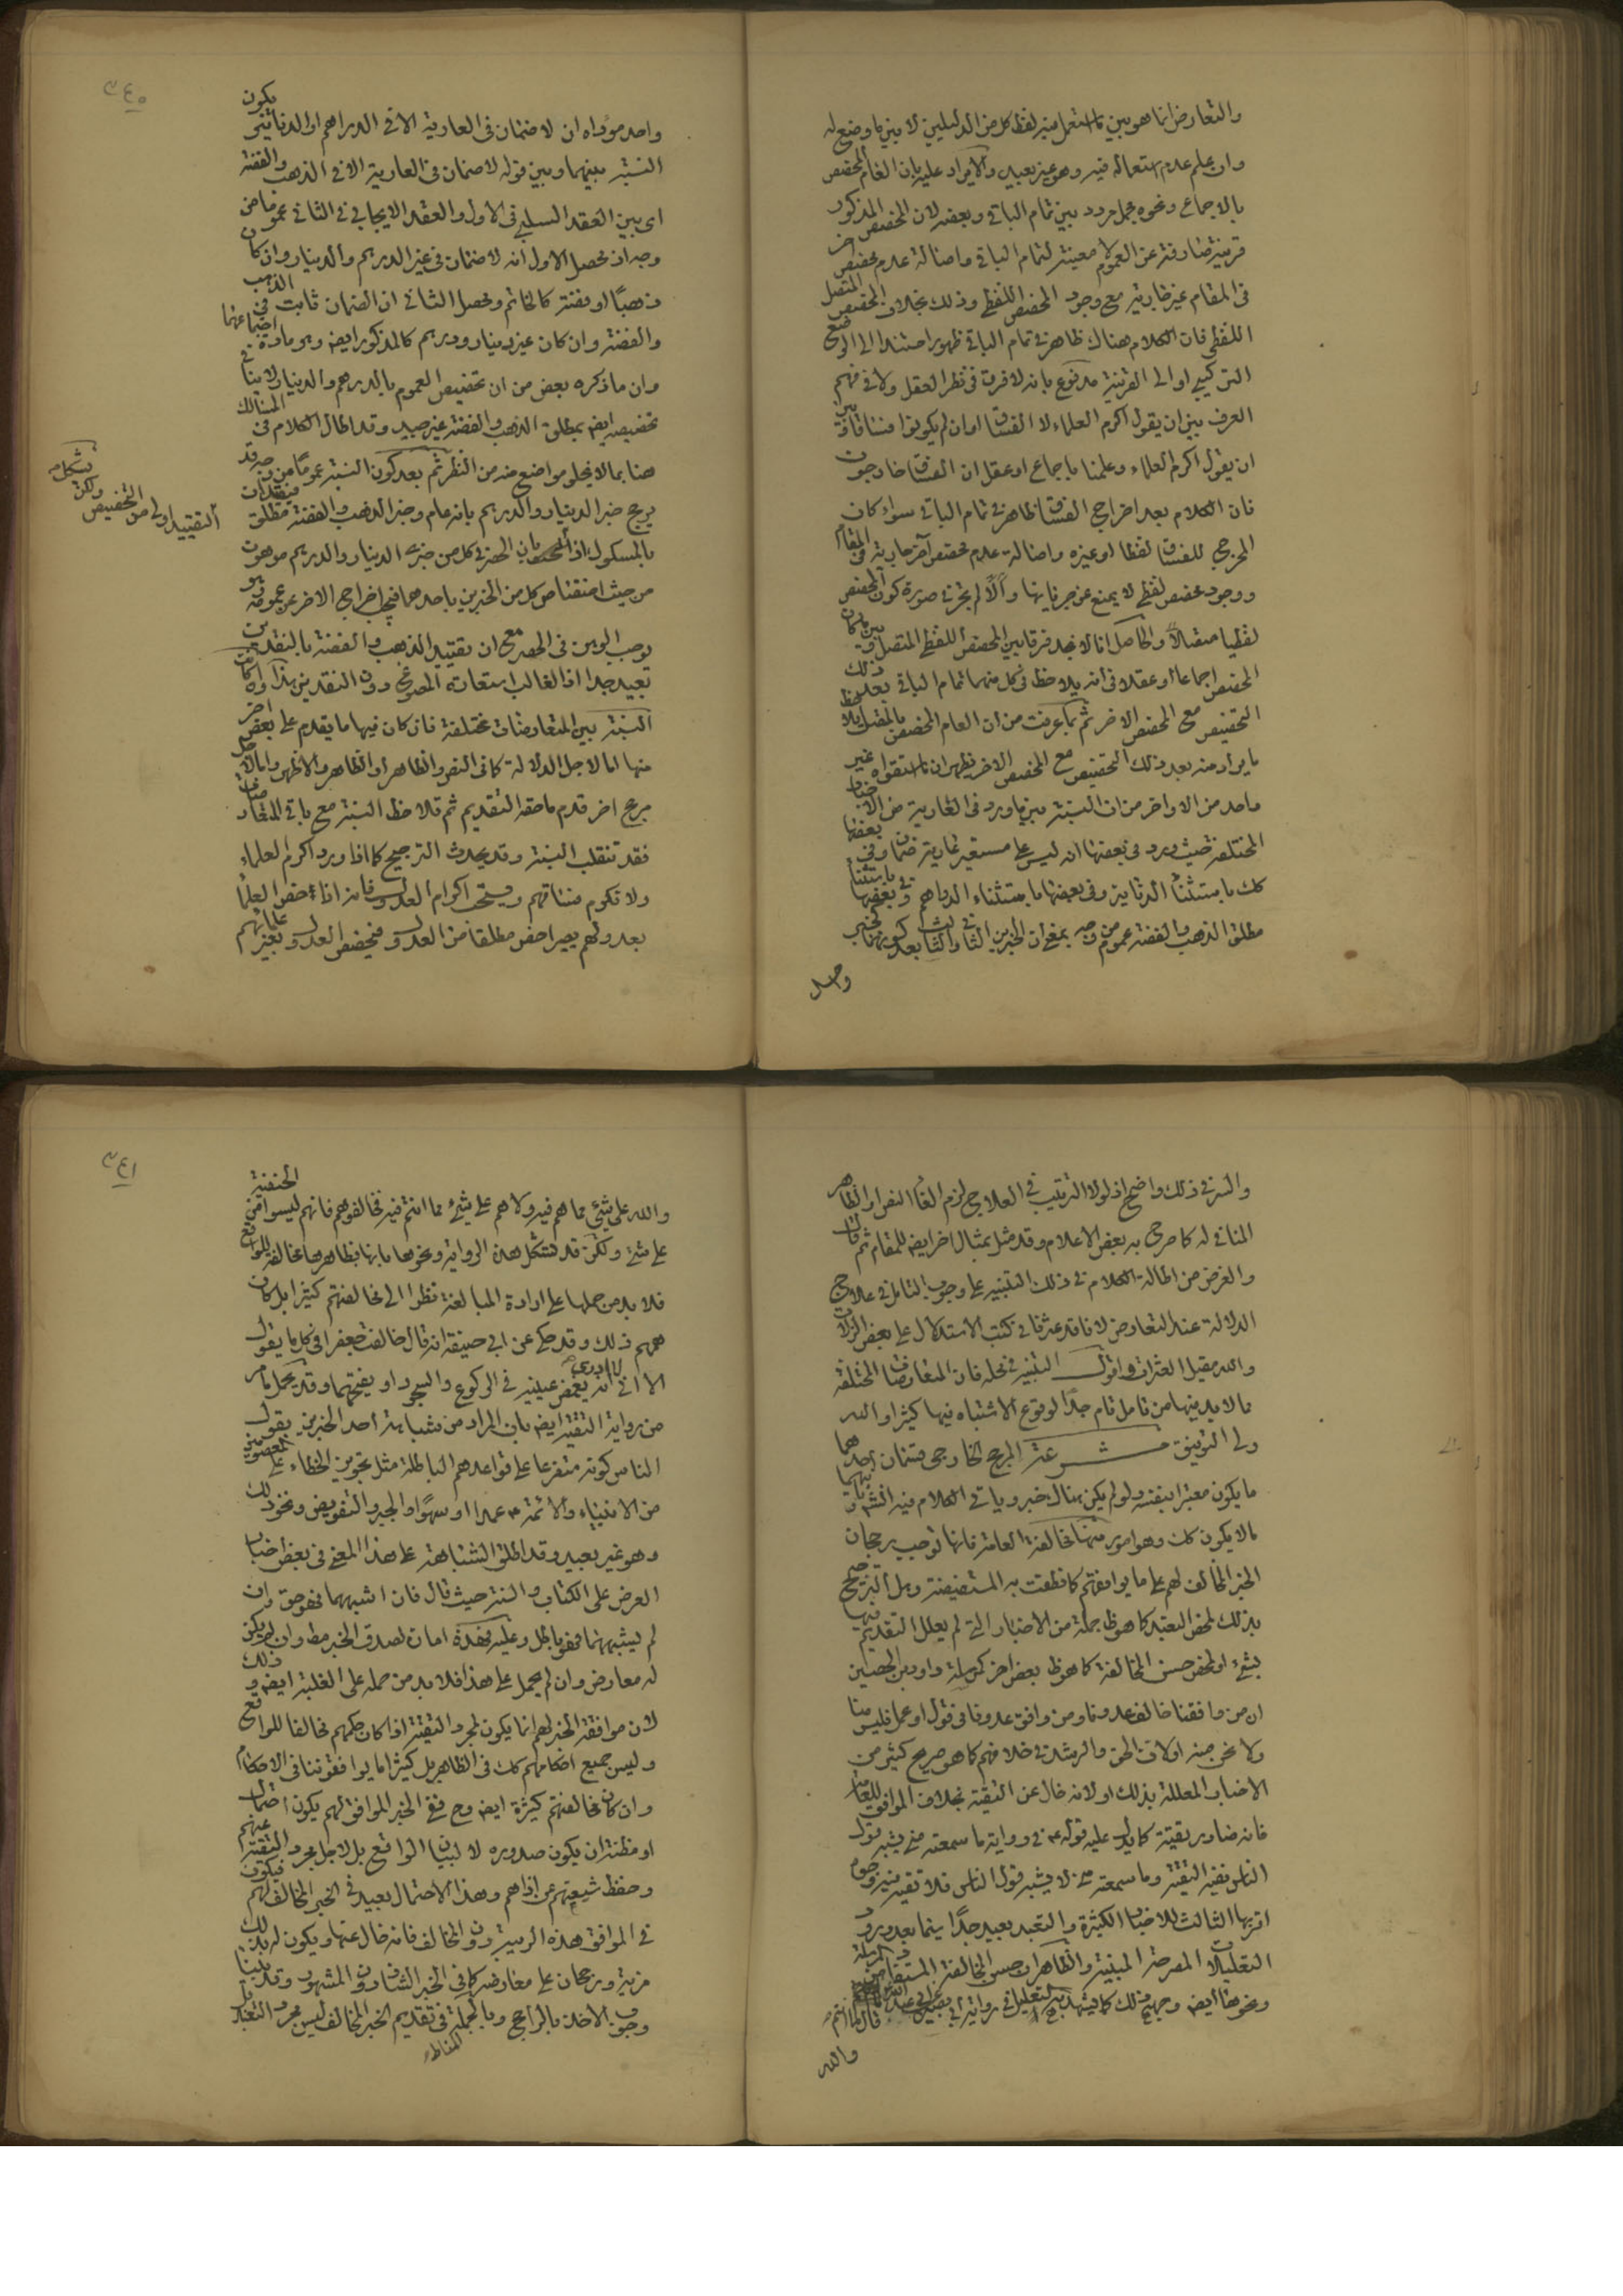 والتعارض انما هو بين ما استعمل فيه لفظ كل من الدليلين لا بين ما وضع له
وان علم عدم استعماله فيه وهو غير بعيد والايراد عليه بان العام المخصص
بالاجماع ونحوه مجمل مردد بين تمام الباقي وبعضه لان المخصص المذكور
قرينة صارفة عن العموم لا معينة لتمام الباقي واصالة عدم مخصص اخر
في المقام غير جارية مع وجود المخصص اللفظي وذلك بخلاف المخصص المتصل
اللفظي فان الكلام هناك ظاهر في تمام الباقي ظهورا مستندا الى الوضع
التركيبي او الى القرينة مدفوع بانه لا فرق في نظر العقل ولا في فهم
العرف بين ان يقول اكرم العلماء لا الفساق او ان لم يكونوا فساقا وبين
ان يقول اكرم العلماء وعلمنا باجماع او عقل ان الفساق خارجون
فان الكلام بعد اخراج الفساق ظاهر في تمام الباقي سواء كان
المخرج للفساق لفظا او غيره واصالة عدم مخصص آخر جارية في المقام
ووجود مخصص لفظي لا يمنع عن جريانها والا لم يجز في صورة كون المخصص
لفظيا متصلا والحاصل انا لا نجد فرقا بين المخصص اللفظي المتصل وبين ما كان
المخصص اجماعا او عقلا في انه يلاحظ في كل منهما تمام الباقي بعد ذلك
التخصيص مع المخصص الاخر ثم بما عرفت من ان العام المخصص بالمتصل يلاحظ
ما يراد منه بعد ذلك التخصيص مع المخصص الاخر يظهر ان ما استقواه غير
واحد من الاواخر من ان النسبة بين ما ورد في العارية من الاخبار
المختلفة حيث ورد في بعضها انه ليس على مستعير عارية ضمان وفي بعضها
كك باستثناء الدنانير وفي بعضها باستثناء الدراهم وفي بعضها باستثناء
مطلق الذهب والفضة عموم من وجه بمعنى ان الخبرين الثاني والثالث بعد كونهما كخبر
واحد
٣٤٠
واحد مؤداه ان لا ضمان في العارية الا في الدراهم او الدنانير يكون
النسبة بينهما وبين قوله لا ضمان في العارية الا في الذهب والفضة
اى بين العقد السلبي في الاول والعقد الايجابي في الثاني عموما من
وجه اذ محصل الاول انه لا ضمان في غير الدرهم والدينار وان كان
ذهبا او فضة كالخاتم ومحصل الثاني ان الضمان ثابت في الذهب
والفضة وان كان غير دينار ودرهم كالمذكور ايضا وهو مادة اجتماعهما
وان ما ذكره بعض من ان تخصيص العموم بالدرهم والدينار لا ينافي
تخصيصه ايضا بمطلق الذهب والفضة غير جيد وقد اطال الكلام في المسالك
هنا بما لا يخلو مواضع منه من النظر ثم بعد كون النسبة عموما من وجه قد
يرجح خبر الدينار والدرهم بانه عام وخبر الذهب والفضة مطلق فيتقيدان
بالمسكوك اذ الحصر في كل من خبرى الدينار والدرهم موهون
من حيث اختصاص كل من الخبرين باحدهما فيجب اخراج الاخر عن عمومه وهو
يوجب الوهن في الحصر مع ان تقييد الذهب والفضة بالنقدين
بعيد جدا اذ الغالب استعارة المصوغ دون النقدين هذا وان كانت
النسبة بين المتعارضات مختلفة فان كان فيها ما يقدم على بعض اخر
منها اما لاجل الدلالة كما في النص والظاهر او الظاهر والاظهر واما لاجل
مرجح اخر قدم ما حقه التقديم ثم تلاحظ النسبة مع باقي المتعارضات
فقد تنقلب النسبة وقد يحدث الترجيح كما اذا ورد اكرم العلماء
ولا تكرم فساقهم ويستحب اكرام العدول فانه اذا خص العلماء
بعدولهم يصير اخص مطلقا من العدول فيخصص العدول بغير علمائهم
يشكل
ولكن
التقييد اولى من التخصيص
والسر في ذلك واضح اذ لولا الترتيب في العلاج لزم الغاء النص او الظاهر
المنافي له كما صرح به بعض الاعلام وقد مثل بمثال اخر ايضا للمقام ثم قال
والغرض من اطالة الكلام في ذلك التنبيه على وجوب التامل في علاج
الدلالة عند التعارض لانا قد عثرنا في كتب الاستدلال على بعض الزلات
والله مقيل العثرات اقول التنبيه في محله فان المتعارضات المختلفة
مما لا بد فيها من تامل تام جدا لوقوع الاشتباه فيها كثيرا والله
ولي التوفيق مشرعة المرجح الخارجي قسمان احدهما
ما يكون معتبرا بنفسه ولو لم يكن هناك خبر وياتي الكلام فيه انشاء وثانيهما
ما لا يكون كك وهو امور منها مخالفة العامة فانها توجب رجحان
الخبر المخالف لهم على ما يوافقهم كما نطقت به المستفيضة وهل الترجيح
بذلك لمحض التعبد كما هو ظ جملة من الاخبار التي لم يعلل التقديم فيها
بشيء او لمحض حسن المخالفة كما هو ظ بعض اخر كمرسلة داود بن الحصين
ان من وافقنا خالف عدونا ومن وافق عدونا في قول او عمل فليس منا
ولا نحن منه او لان الحق والرشد في خلافهم كما هو صريح كثير من
الاخبار المعللة بذلك او لانه خال عن التقية بخلاف الموافق للعامة
فانه صادر بتقية كما يدل عليه قوله ع في رواية ما سمعته مني يشبه قول
الناس ففيه التقية وما سمعته مني لا يشبه قول الناس فلا تقية فيه وجوه
اقربها الثالث للاخبار الكثيرة والتعبد بعيد جدا سيما بعد ورود
التعليلات المصرحة المبينة والظاهر ان حسن المخالفة المستفاد من المرسلة
ونحوها ايضا وجهه ذلك كما يشهد به التعليل في رواية ابي بصير عن ابي عبد الله قال ما انتم
والله
٣٤١
والله على شيء مما هم فيه ولا هم على شيء مما انتم فيه فخالفوهم فانهم ليسوا من الحنيفية
على شيء ولكن قد تشكل هذه الرواية ونحوها بانها بظاهرها مخالفة للواقع
فلا بد من حملها على ارادة المبالغة نظرا الى مخالفتهم كثيرا بل كان
همهم ذلك وقد حكى عن ابي حنيفة انه قال خالفت جعفرا في كل ما يقول
الا اني لا ادري انه يغمض عينيه في الركوع والسجود او يفتحهما وقد يحمل ما مر
من رواية التقية ايضا بان المراد من شباهة احد الخبرين بقول
الناس كونه متفرعا على قواعدهم الباطلة مثل تجويز الخطاء على المعصومين
من الانبياء والائمة ع عمدا او سهوا والجبر والتفويض ونحو ذلك
وهو غير بعيد وقد اطلق الشباهة على هذا المعنى في بعض اخبار
العرض على الكتاب والسنة حيث قال فان اشبههما فهو حق وان
لم يشبههما فهو باطل وعليه فهذه امارة لصدق الخبر مط وان لم يكن
له معارض وان لم يحمل على هذا فلا بد من حمله على الغلبة ايضا وذلك
لان موافقة الخبر لهم انما يكون لمجرد التقية اذا كان حكمهم مخالفا للواقع
وليس جميع احكامهم كك في الظاهر بل كثيرا ما يوافقوننا في الاحكام
وان كان مخالفتهم كثيرة ايضا وح ففي الخبر الموافق لهم يكون احتمال
او مظنة ان يكون صدوره لا لبيان الواقع بل لاجل مجرد التقية عنهم
وحفظ شيعتهم عن اذاهم وهذا الاحتمال بعيد في الخبر المخالف لهم فيكون
في الموافق هذه الريبة دون المخالف فانه خال عنها ويكون له بذلك
مزية ورجحان على معارضه كما في الخبر الشاذ دون المشهور وقد بينا
وجوب الاخذ بالراجح وبالجملة في تقديم الخبر المخالف ليس مجرد التعبد بل
المناط